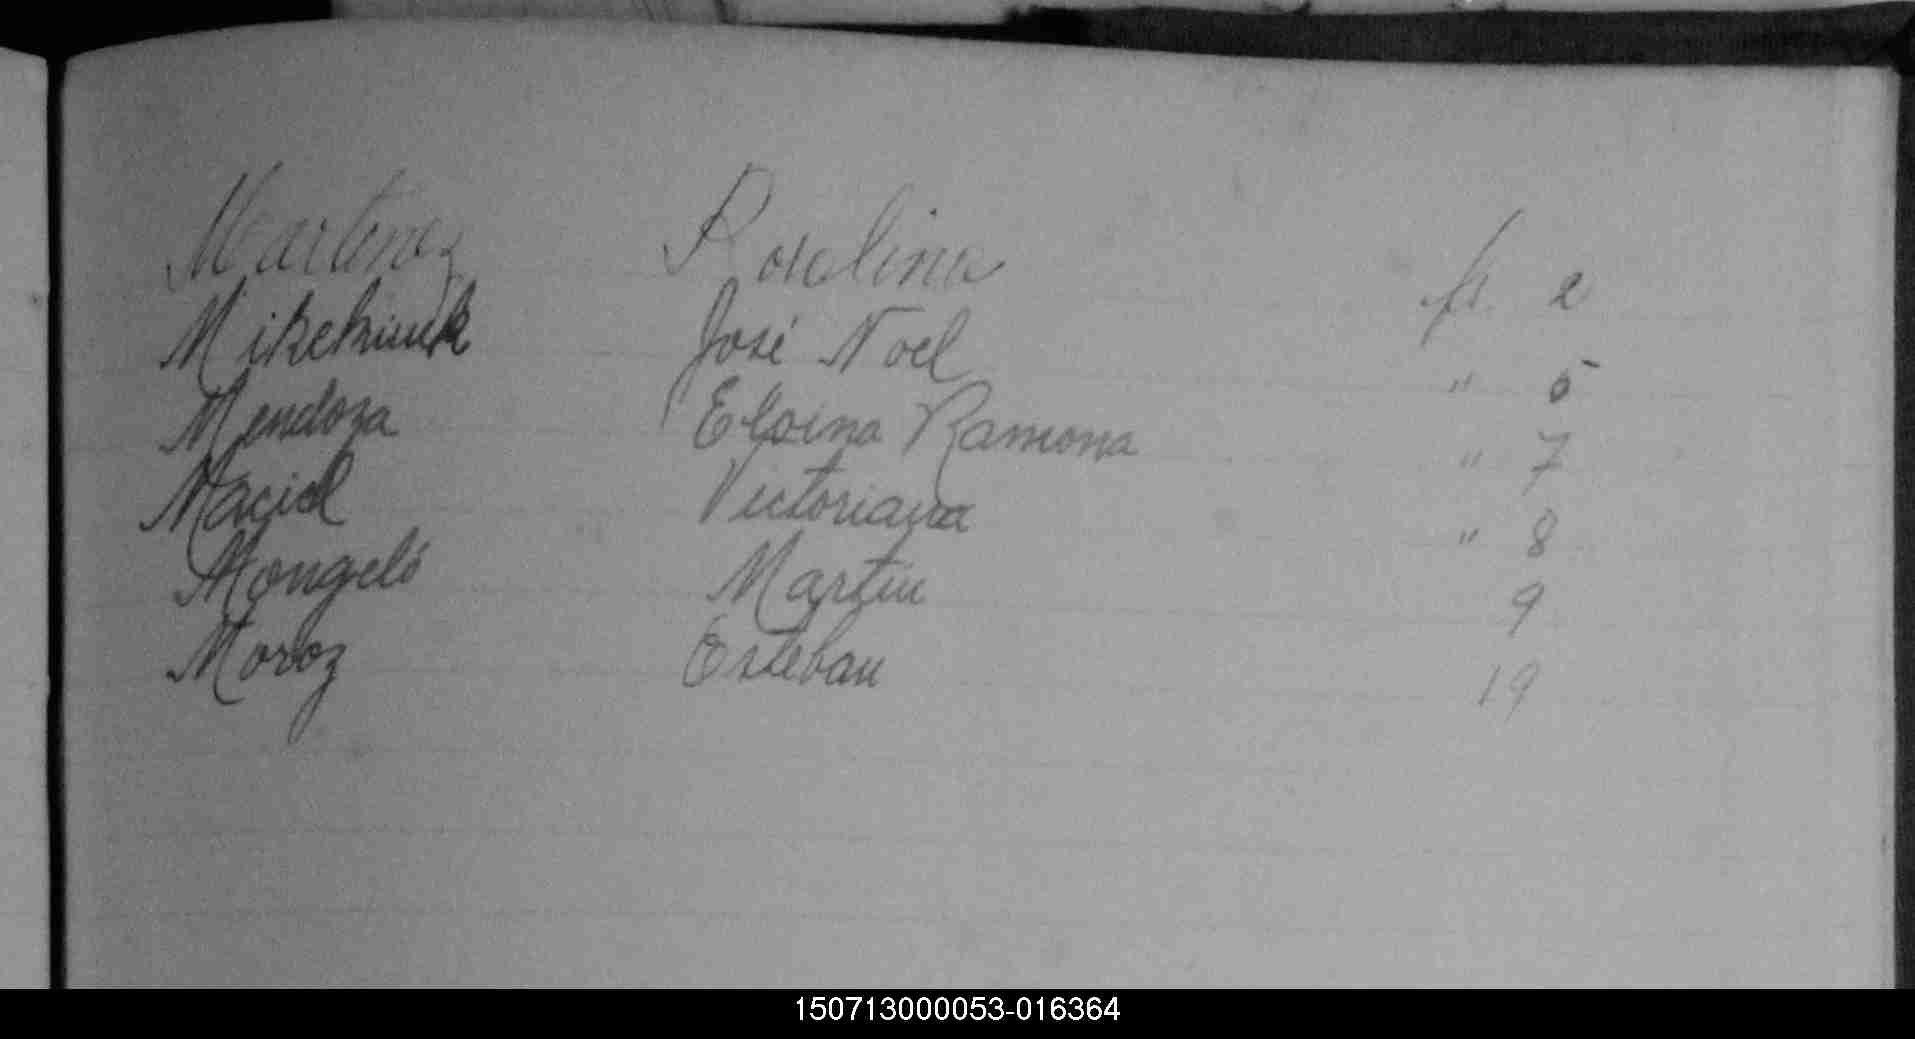 Martinez Rosalina fs. 2
Mikehiuk José Noel " 5
Mendoza Eloina Ramona " 7
Maciel Victoriana " 8
Mongeló Martin 9
Moroz Esteban 19
150713000053-016364